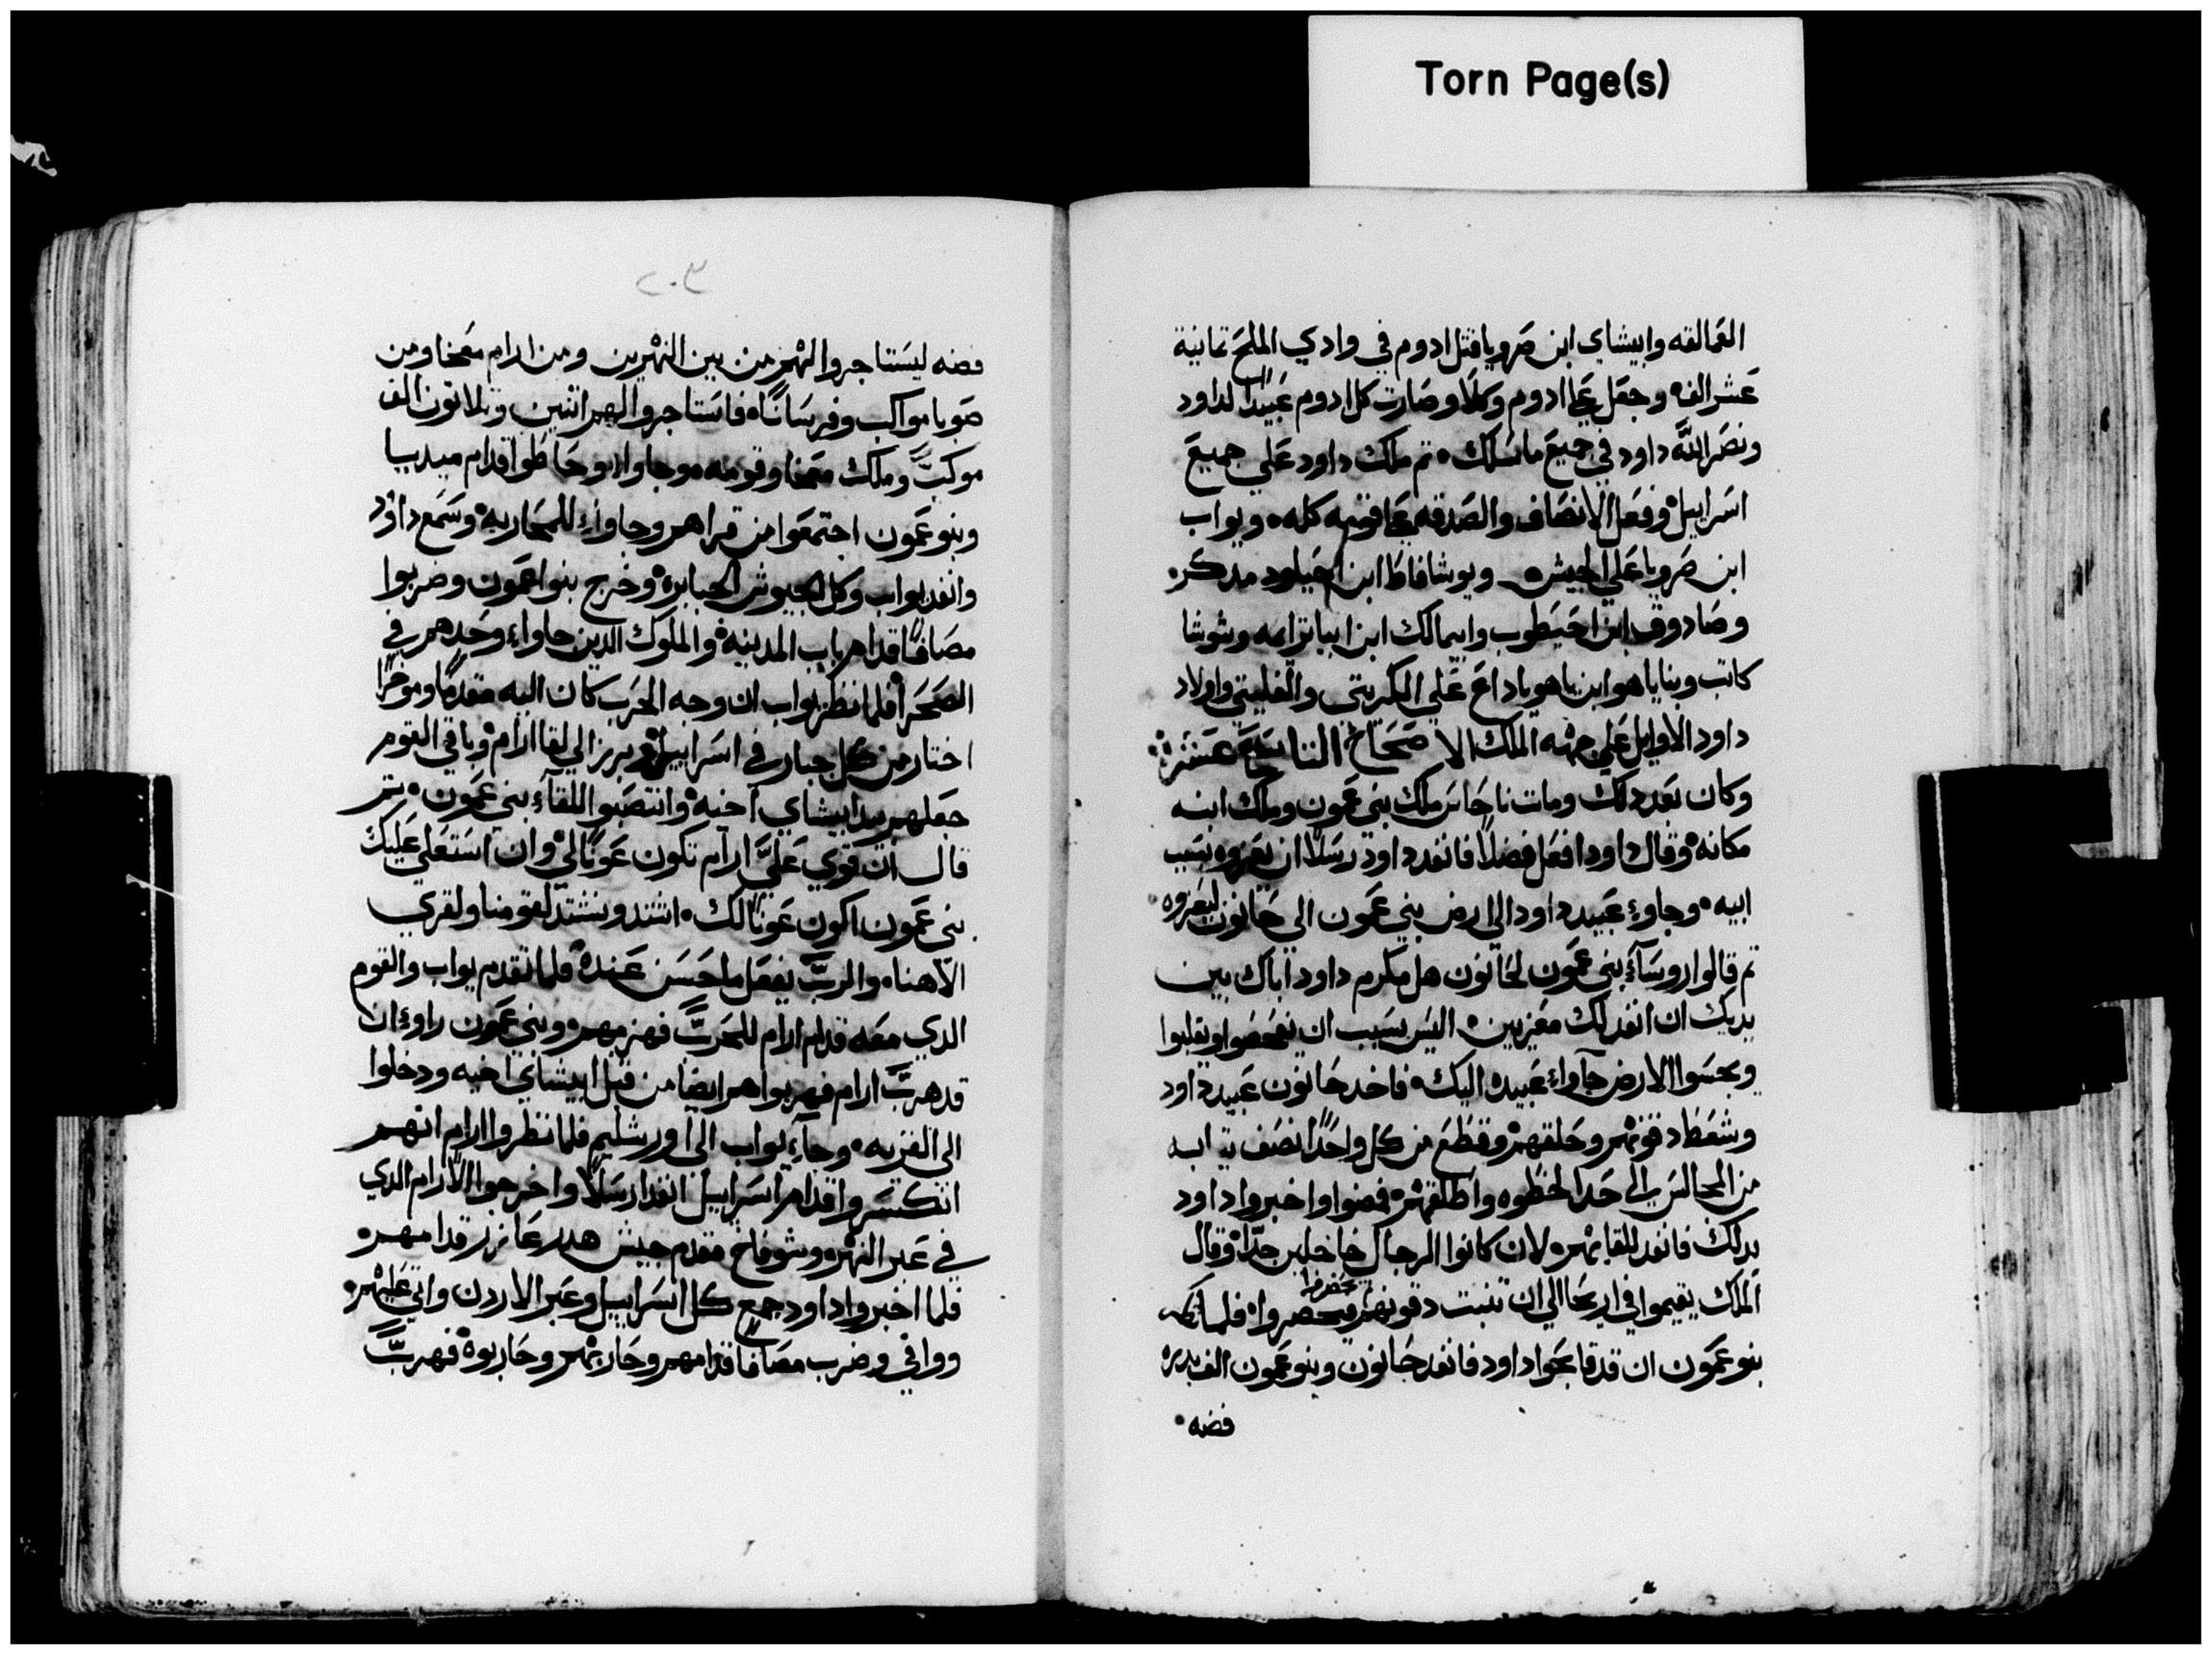 Torn Page(s)
العمالقه وابيشاي ابن صرويا قتل ادوم في وادي الملح تمانية
عشر الف وجعل علي ادوم وكلاً وصارت كل ادوم عبيدًا لداود
ونصر الله داود في جميع ماسلك ٠ تم ملك داود علي جميع
اسراييل وفعل الانصاف والصدقه علي قومه كله ٠ ويواب
ابن صرويا علي الجيش ٠ ويوشافاط ابن احيلود مدكر ٠
وصادوق ابن احيطوب وابيمالك ابن ابياترايه وشوشا
كاتب وبناياهو ابن ياهوياداع علي الكريتي والفليتي واولاد
داود الاوايل علي جهه الملك الاصحاح التاسع عشر
وكان بعد دلك ومات ناحاس ملك بني عمون وملك ابنه
مكانه وقال داود افعل فضلاً فانفد داود رسلاً ان يعزوه بسبب
ابيه ٠ وجاوء عبيد داود الي ارض بني عمون الي حانون ليعزوه
تم قالوا روسآء بني عمون لحانون هل مكرم داود اباك بين
يديك ان انفد لك معزيين ٠ اليس بسبب ان يفحصوا ويقلبوا
ويجسوا الارض جآواء عبيده اليك ٠ فاخد حانون عبيد داود
وشمط دقونهم وحلقهم وقطع من كل واحدًا نصف تيابه
من المجالس الي حد الخطوه واطلقهم ٠ فمضوا واخبروا داود
بدلك فانفد للقايهم ٠ لان كانوا الرجال خاجلين جدًا وقال
الملك يقيموا في اريحا الي ان تنبت دقونهم ويحضروا ٠ فلما
بنو عمون ان قد قابحوا داود فانفد حانون وبنو عمون الف بدره
فضه ٠
٢٠٣
فضه ليستاجروا لهم من بين النهرين ومن ارام معخا ومن
صوبا مواكب وفرسانًا ٠ فاستاجروا لهم اتنين وتلاتون الف
موكب وملك معخا وقومه ٠ وجاواء وحاطوا قدام ميدبا
وبنو عمون اجتمعوا من قراهم وجاواء للمحاربه وسمع داود
وانفد يواب وكل الجيوش الجبابره وخرج بنوا عمون وضربوا
مصافًا قدام باب المدينه والملوك الدين جاواء وحدهم في
الصحرا فلما نظر يواب ان وجه الحرب كان اليه مقدمًا وموخرًا
اختار من كل جبار في اسراييل وبرز الي لقا ارام وباقي القوم
جعلهم بيد ابيشاي اخيه وانتصبوا للقآء بني عمون ٠ تم
قال ان قوي عليَّ ارام تكون عونًا لي وان استعلي عليك
بني عمون اكون عونًا لك ٠ اشتد ونشتد لقومنا ولقري
الاهنا ٠ والرب يفعل ما حسن عنده فلما تقدم يواب والقوم
الدي معه قدام ارام للحرب فهزمهم ٠ وبني عمون راوء ان
قد هرب ارام فهربوا هم ايضا من قبل ابيشاي اخيه ودخلوا
الي القريه ٠ وجآء يواب الي اورشليم فلما نظروا ارام انهم
انكسروا قدام اسراييل انفدا رسلاً واخرجوا الارام الدي
في عبر النهر ٠ وشوفاخ مقدم جيش هدر عازر قدامهم ٠
فلما اخبروا داود جمع كل اسراييل وعبر الاردن واتي عليهم ٠
ووافي وضرب مصافا قدامهم وحاربهم وحاربوه فهرب